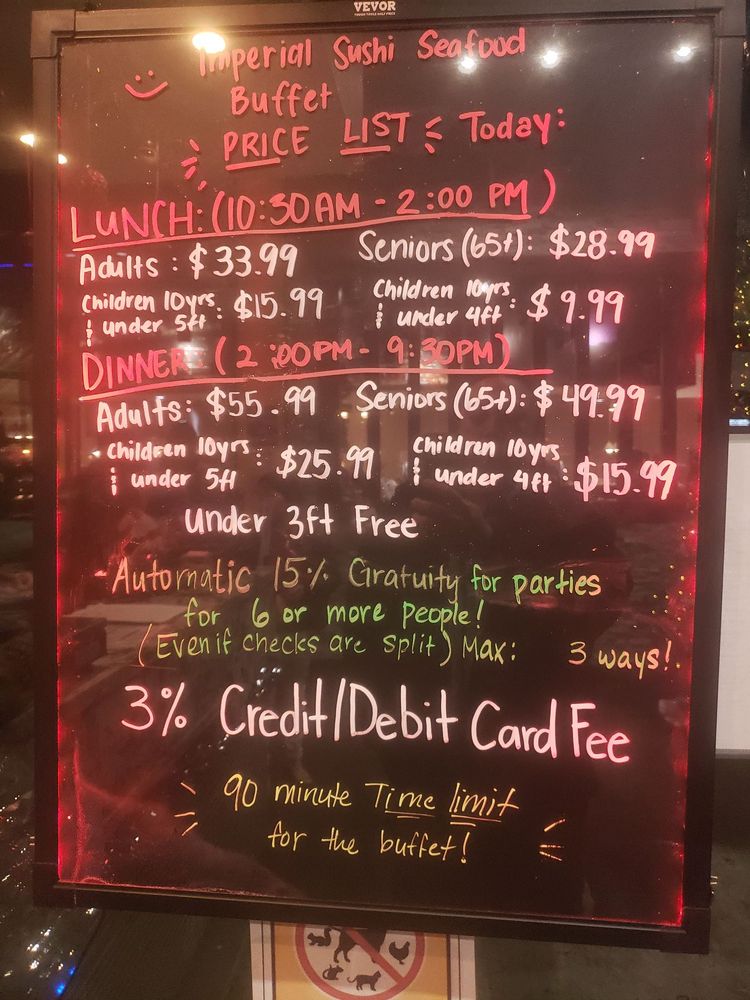 VEVOR
Imperial Sushi Seafood
Buffet
PRICE LIST Today:
LUNCH: (10:30AM - 2:00 PM)
Adults : $33.99 Seniors (65+): $28.99
Children 10yrs & under 5ft : $15.99 Children 10yrs & under 4ft : $9.99
DINNER (2:00PM - 9:30PM)
Adults: $55.99 Seniors (65+): $49.99
Children 10yrs & under 5ft : $25.99 Children 10yrs & under 4ft : $15.99
under 3ft Free
- Automatic 15% Gratuity for parties
for 6 or more people!
(Even if checks are split) Max: 3 ways!
3% Credit/Debit Card Fee
90 minute Time limit
for the buffet!